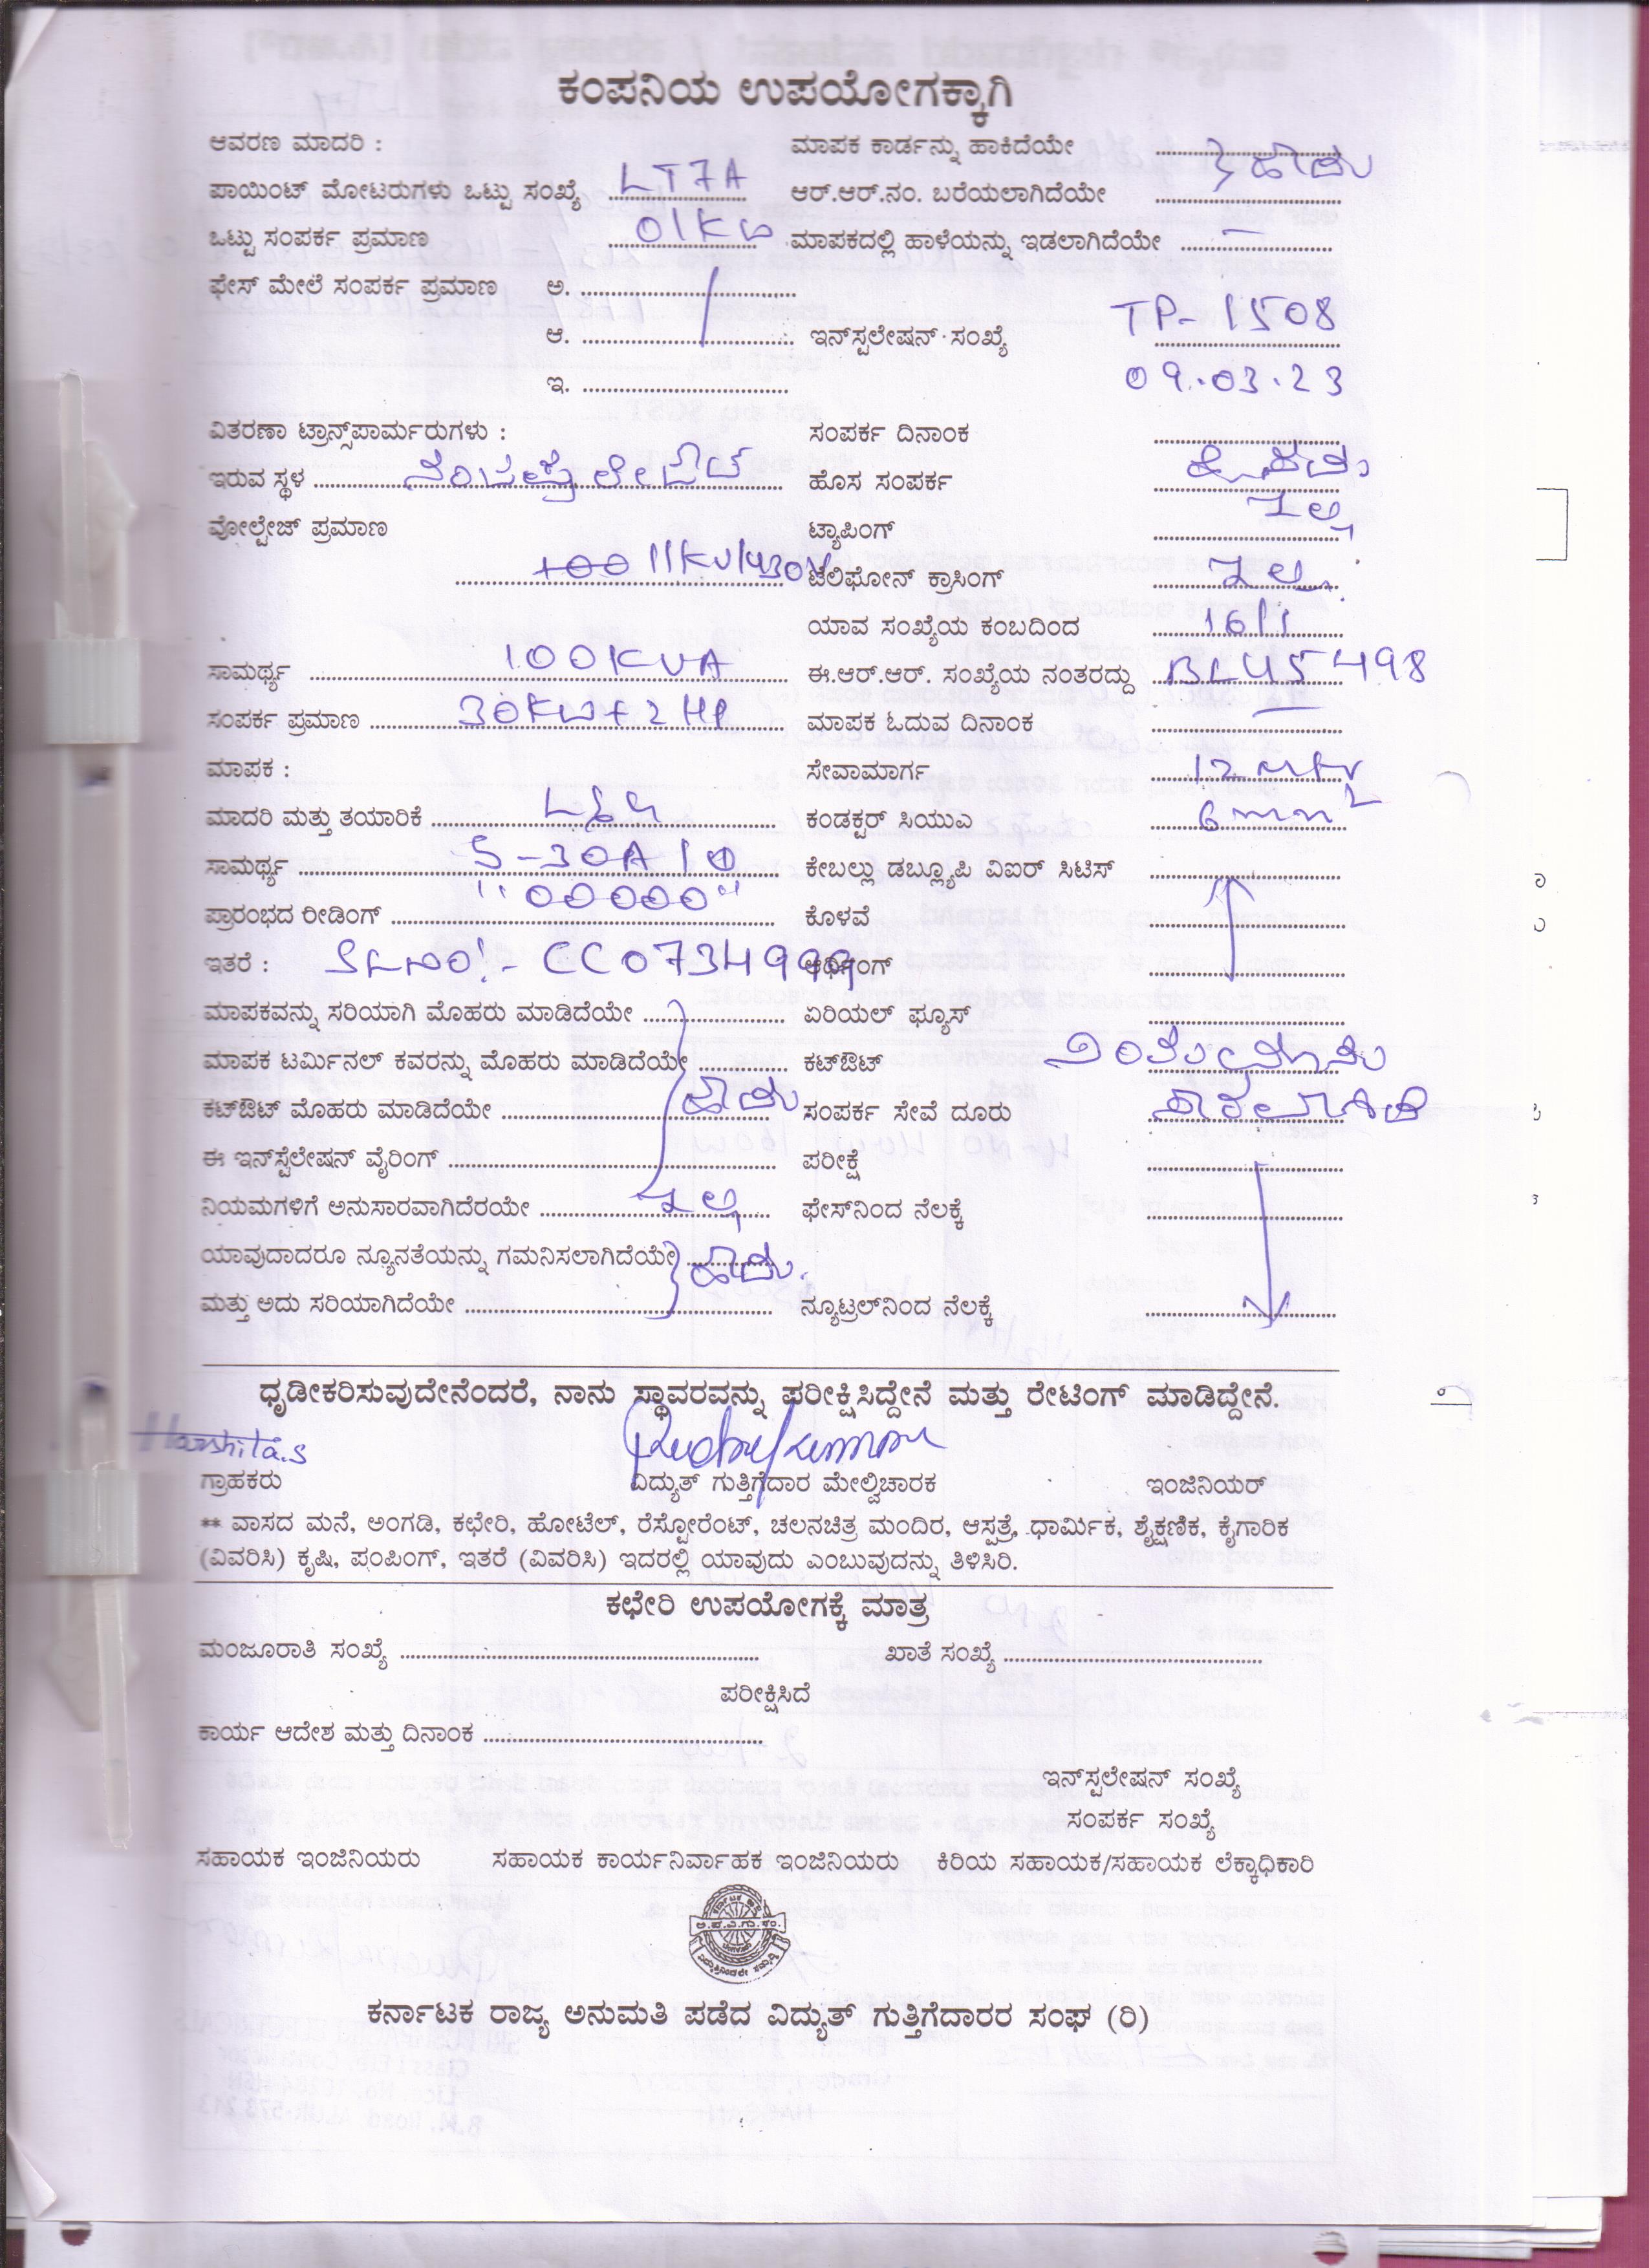 ಕಂಪನಿಯ ಉಪಯೋಗಕ್ಕಾಗಿ
ಆವರಣ ಮಾದರಿ : ಮಾಪಕ ಕಾರ್ಡನ್ನು ಹಾಕಿದೆಯೇ
ಪಾಯಿಂಟ್ ಮೋಟರುಗಳು ಒಟ್ಟು ಸಂಖ್ಯೆ LT7A ಆರ್.ಆರ್.ನಂ. ಬರೆಯಲಾಗಿದೆಯೇ ಹೌದು
ಒಟ್ಟು ಸಂಪರ್ಕ ಪ್ರಮಾಣ 01KW ಮಾಪಕದಲ್ಲಿ ಹಾಳೆಯನ್ನು ಇಡಲಾಗಿದೆಯೇ —
ಫೇಸ್ ಮೇಲೆ ಸಂಪರ್ಕ ಪ್ರಮಾಣ ಅ.
ಆ. ಇನ್‌ಸ್ಟಲೇಷನ್ ಸಂಖ್ಯೆ TP-1508
ಇ. 09.03.23
ವಿತರಣಾ ಟ್ರಾನ್ಸ್‌ಪಾರ್ಮರುಗಳು : ಸಂಪರ್ಕ ದಿನಾಂಕ
ಇರುವ ಸ್ಥಳ ಹೊಸ ಸಂಪರ್ಕ
ವೋಲ್ಟೇಜ್ ಪ್ರಮಾಣ ಟ್ಯಾಪಿಂಗ್ ಇಲ್ಲ
11KV/430V ಟೆಲಿಫೋನ್ ಕ್ರಾಸಿಂಗ್ ಇಲ್ಲ
ಯಾವ ಸಂಖ್ಯೆಯ ಕಂಬದಿಂದ 16/1
ಸಾಮರ್ಥ್ಯ 100KVA ಈ.ಆರ್.ಆರ್. ಸಂಖ್ಯೆಯ ನಂತರದ್ದು BLU5498
ಸಂಪರ್ಕ ಪ್ರಮಾಣ 30KW+2HP ಮಾಪಕ ಓದುವ ದಿನಾಂಕ —
ಮಾಪಕ : ಸೇವಾಮಾರ್ಗ 12 mtr
ಮಾದರಿ ಮತ್ತು ತಯಾರಿಕೆ L&G ಕಂಡಕ್ಟರ್ ಸಿಯುಎ 6mm²
ಸಾಮರ್ಥ್ಯ 5-30A 1Φ ಕೇಬಲ್ಲು ಡಬ್ಲ್ಯೂಪಿ ವಿಐರ್ ಸಿಟಿಸ್
ಪ್ರಾರಂಭದ ರೀಡಿಂಗ್ "00000" ಕೊಳವೆ
ಇತರೆ : SL NO:- CC0734999 ಆರ್ಥಿಂಗ್
ಮಾಪಕವನ್ನು ಸರಿಯಾಗಿ ಮೊಹರು ಮಾಡಿದೆಯೇ ಏರಿಯಲ್ ಫ್ಯೂಸ್
ಮಾಪಕ ಟರ್ಮಿನಲ್ ಕವರನ್ನು ಮೊಹರು ಮಾಡಿದೆಯೇ ಕಟ್‌ಔಟ್
ಕಟ್‌ಔಟ್ ಮೊಹರು ಮಾಡಿದೆಯೇ ಹೌದು ಸಂಪರ್ಕ ಸೇವೆ ದೂರು
ಈ ಇನ್‌ಸ್ಟೆಲೇಷನ್ ವೈರಿಂಗ್ ಪರೀಕ್ಷೆ
ನಿಯಮಗಳಿಗೆ ಅನುಸಾರವಾಗಿದೆರಯೇ ಇಲ್ಲ ಫೇಸ್‌ನಿಂದ ನೆಲಕ್ಕೆ
ಯಾವುದಾದರೂ ನ್ಯೂನತೆಯನ್ನು ಗಮನಿಸಲಾಗಿದೆಯೇ ಹೌದು.
ಮತ್ತು ಅದು ಸರಿಯಾಗಿದೆಯೇ ನ್ಯೂಟ್ರಲ್‌ನಿಂದ ನೆಲಕ್ಕೆ
ಧೃಡೀಕರಿಸುವುದೇನೆಂದರೆ, ನಾನು ಸ್ಥಾವರವನ್ನು ಪರೀಕ್ಷಿಸಿದ್ದೇನೆ ಮತ್ತು ರೇಟಿಂಗ್ ಮಾಡಿದ್ದೇನೆ.
Harshita.S
ಗ್ರಾಹಕರು ವಿದ್ಯುತ್ ಗುತ್ತಿಗೆದಾರ ಮೇಲ್ವಿಚಾರಕ ಇಂಜಿನಿಯರ್
** ವಾಸದ ಮನೆ, ಅಂಗಡಿ, ಕಛೇರಿ, ಹೋಟೆಲ್, ರೆಸ್ಟೋರೆಂಟ್, ಚಲನಚಿತ್ರ ಮಂದಿರ, ಆಸ್ಪತ್ರೆ, ಧಾರ್ಮಿಕ, ಶೈಕ್ಷಣಿಕ, ಕೈಗಾರಿಕ
(ವಿವರಿಸಿ) ಕೃಷಿ, ಪಂಪಿಂಗ್, ಇತರೆ (ವಿವರಿಸಿ) ಇದರಲ್ಲಿ ಯಾವುದು ಎಂಬುವುದನ್ನು ತಿಳಿಸಿರಿ.
ಕಛೇರಿ ಉಪಯೋಗಕ್ಕೆ ಮಾತ್ರ
ಮಂಜೂರಾತಿ ಸಂಖ್ಯೆ ಖಾತೆ ಸಂಖ್ಯೆ
ಪರೀಕ್ಷಿಸಿದೆ
ಕಾರ್ಯ ಆದೇಶ ಮತ್ತು ದಿನಾಂಕ
ಇನ್‌ಸ್ಟಲೇಷನ್ ಸಂಖ್ಯೆ
ಸಂಪರ್ಕ ಸಂಖ್ಯೆ
ಸಹಾಯಕ ಇಂಜಿನಿಯರು ಸಹಾಯಕ ಕಾರ್ಯನಿರ್ವಾಹಕ ಇಂಜಿನಿಯರು ಕಿರಿಯ ಸಹಾಯಕ/ಸಹಾಯಕ ಲೆಕ್ಕಾಧಿಕಾರಿ
ಕರ್ನಾಟಕ ರಾಜ್ಯ ಅನುಮತಿ ಪಡೆದ ವಿದ್ಯುತ್ ಗುತ್ತಿಗೆದಾರರ ಸಂಘ (ರಿ)